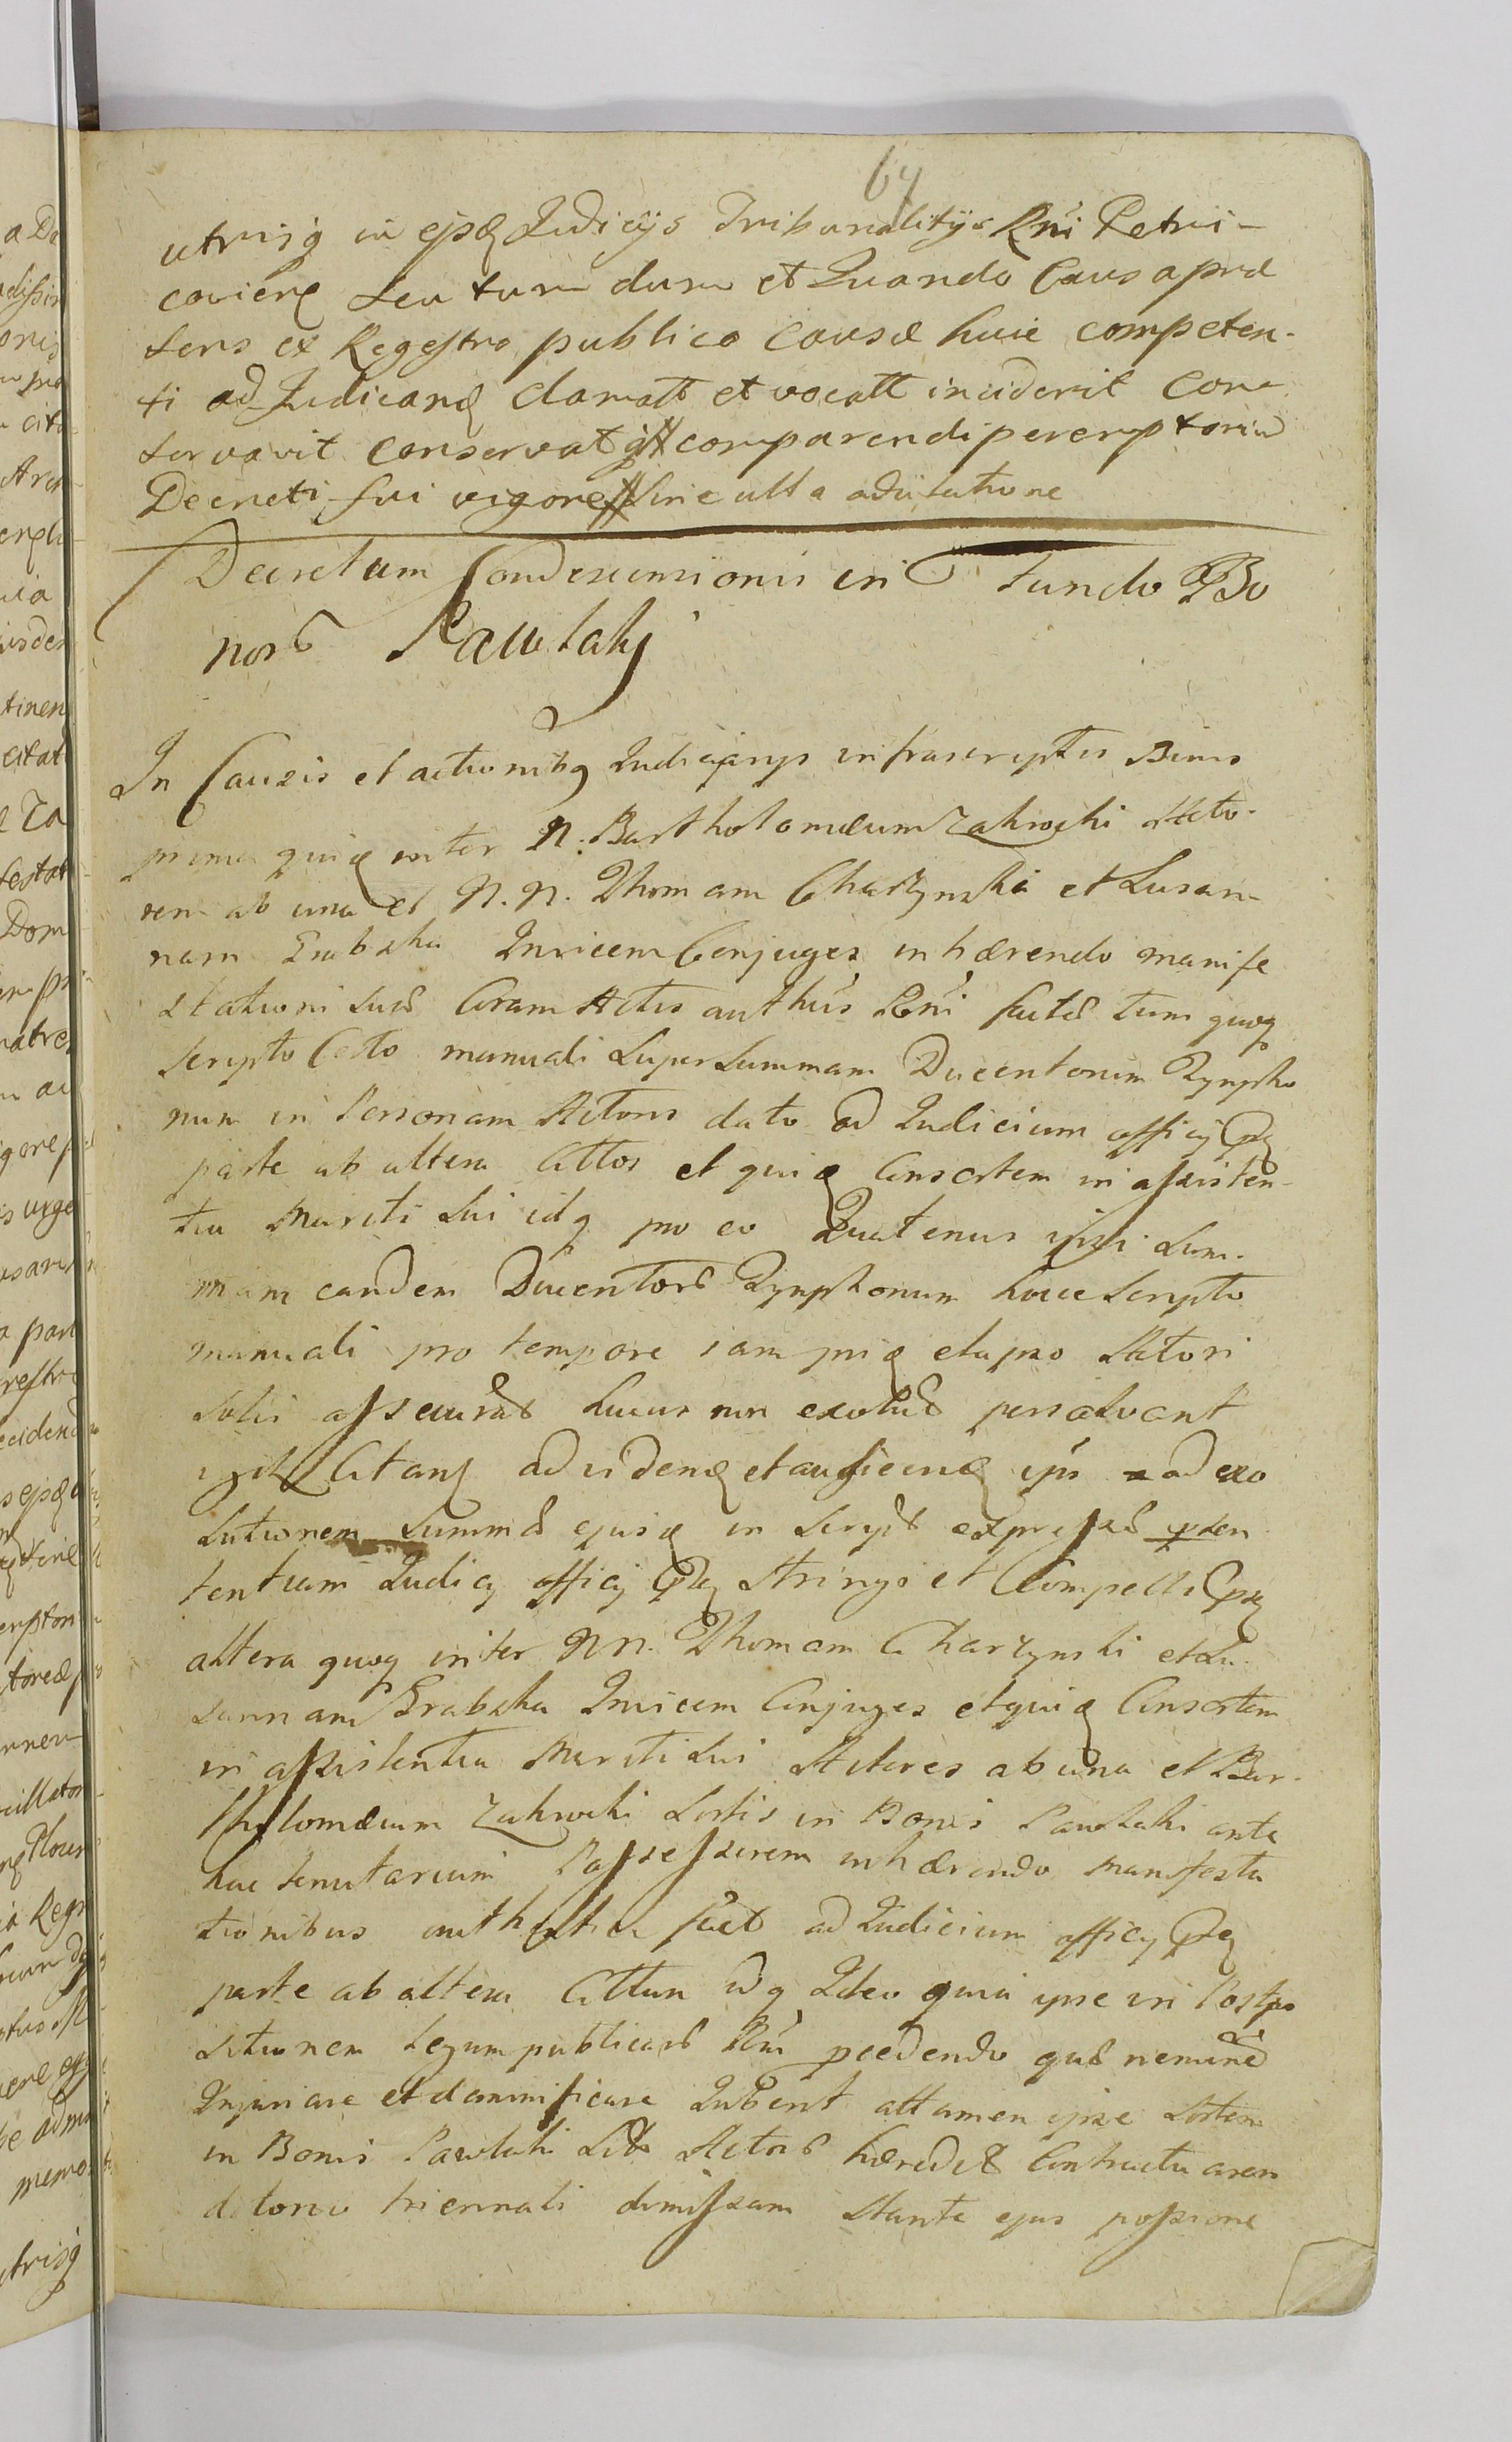 64
utrisq in ejsdę Judicijs Tribunalitijs Rni Petrii-
coviēn̄ seu tum dum et Quando Causa præ
sens ex Regestro publico Causæ huic competen-
ti ad Judicanđ clamatt et vocatt inciderit con
servavit conservatqȝ comparendi peremptoriæ
Decreti sui vigore sine ulla adcitatione
Decretum Condescensionis in Fundo Bo
nor Pawłaki
In Causis et actionibq Judiciarijs infrascriptis Binis
prima quidę inter N. Bartholomæum Zakrocki Acto-
rem ab una et N. N. Thomam Charzynski et Susan-
nam Grabska Invicem Conjuges inhærendo manife
stationi suæ Coram Actis auth Rni factæ tum quoq
scripto Certo manuali super summam Ducentorum Tymph
num in Personam Actoris dato ad Judicium officij
parte ab altera Cittos et quidę Consortem in assisten-
tia Mariti sui idq pro eo Quatenus ipsi sum-
mam eandem Ducentor Tymphonum hocce scripto
manuali pro tempore iam pridę elapso Actori
solvi assecurat hucus non exolut persolvant
Citanţ ad videnđ et audienđ ipsos ad exo
lutionem summæ ejusdę in scripto expressæ
tentiam Judicij officij stringi et Compelli
altera quoq inter NN. Thomam Charzynski et Su-
sannam Grabska Invicem Conjuges et quidę Consortem
in assistentia Mariti sui Actores ab una et Bar-
tholomæum Zakrocki sortis in Bonis Pawłaki ante
hac tenutarium Possessorem inhærendo manifesta
tionibus authentice fact ad Judicium officij
parte ab altera Cittum idq Ideo quia ipse in Postpo
sitionem Legum publicar Rni pcedendo quæ neminem
Injuriare et damnificare Jubent attamen ipse sortem
in Bonis Pawłaki Actor hæredit Contractu aren
ditorio triennali dimissam stante ejus possione